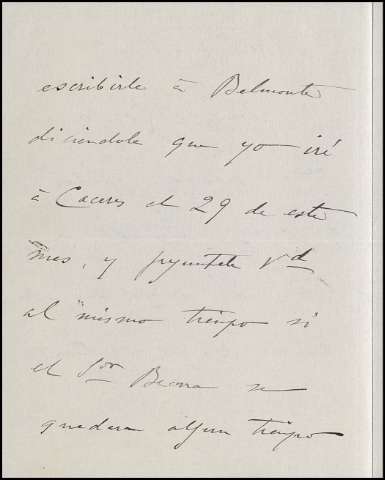 escribirle á Belmonte
diciendole que yo iré
á Caceres el 29 de este
mes, y preguntele Vd
al mismo tiempo si
el Sor se
quedara algun tiempo